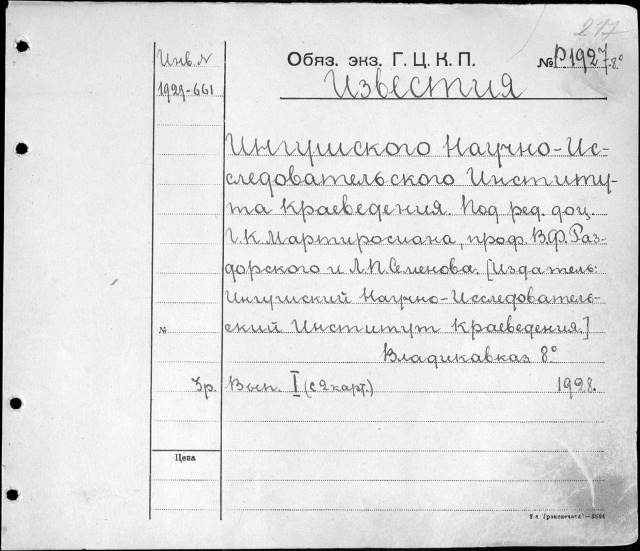 217
Инв. №
1929-661
Обяз. экз. Г. Ц. К. П.
№ Р.1927.8°
Известия
Ингушского Научно-Ис-
следовательского Институ-
та Краеведения. Под ред. доц.
Г.К. Мартиросиана, проф. В.Ф. Раз-
дорского и Л.П. Семенова. [Издатель:
Ингушский Научно-Исследователь-
ский Институт Краеведения.]
№
Владикавказ 8°
Вып. I (с 2 карт.) 1928.
Цена